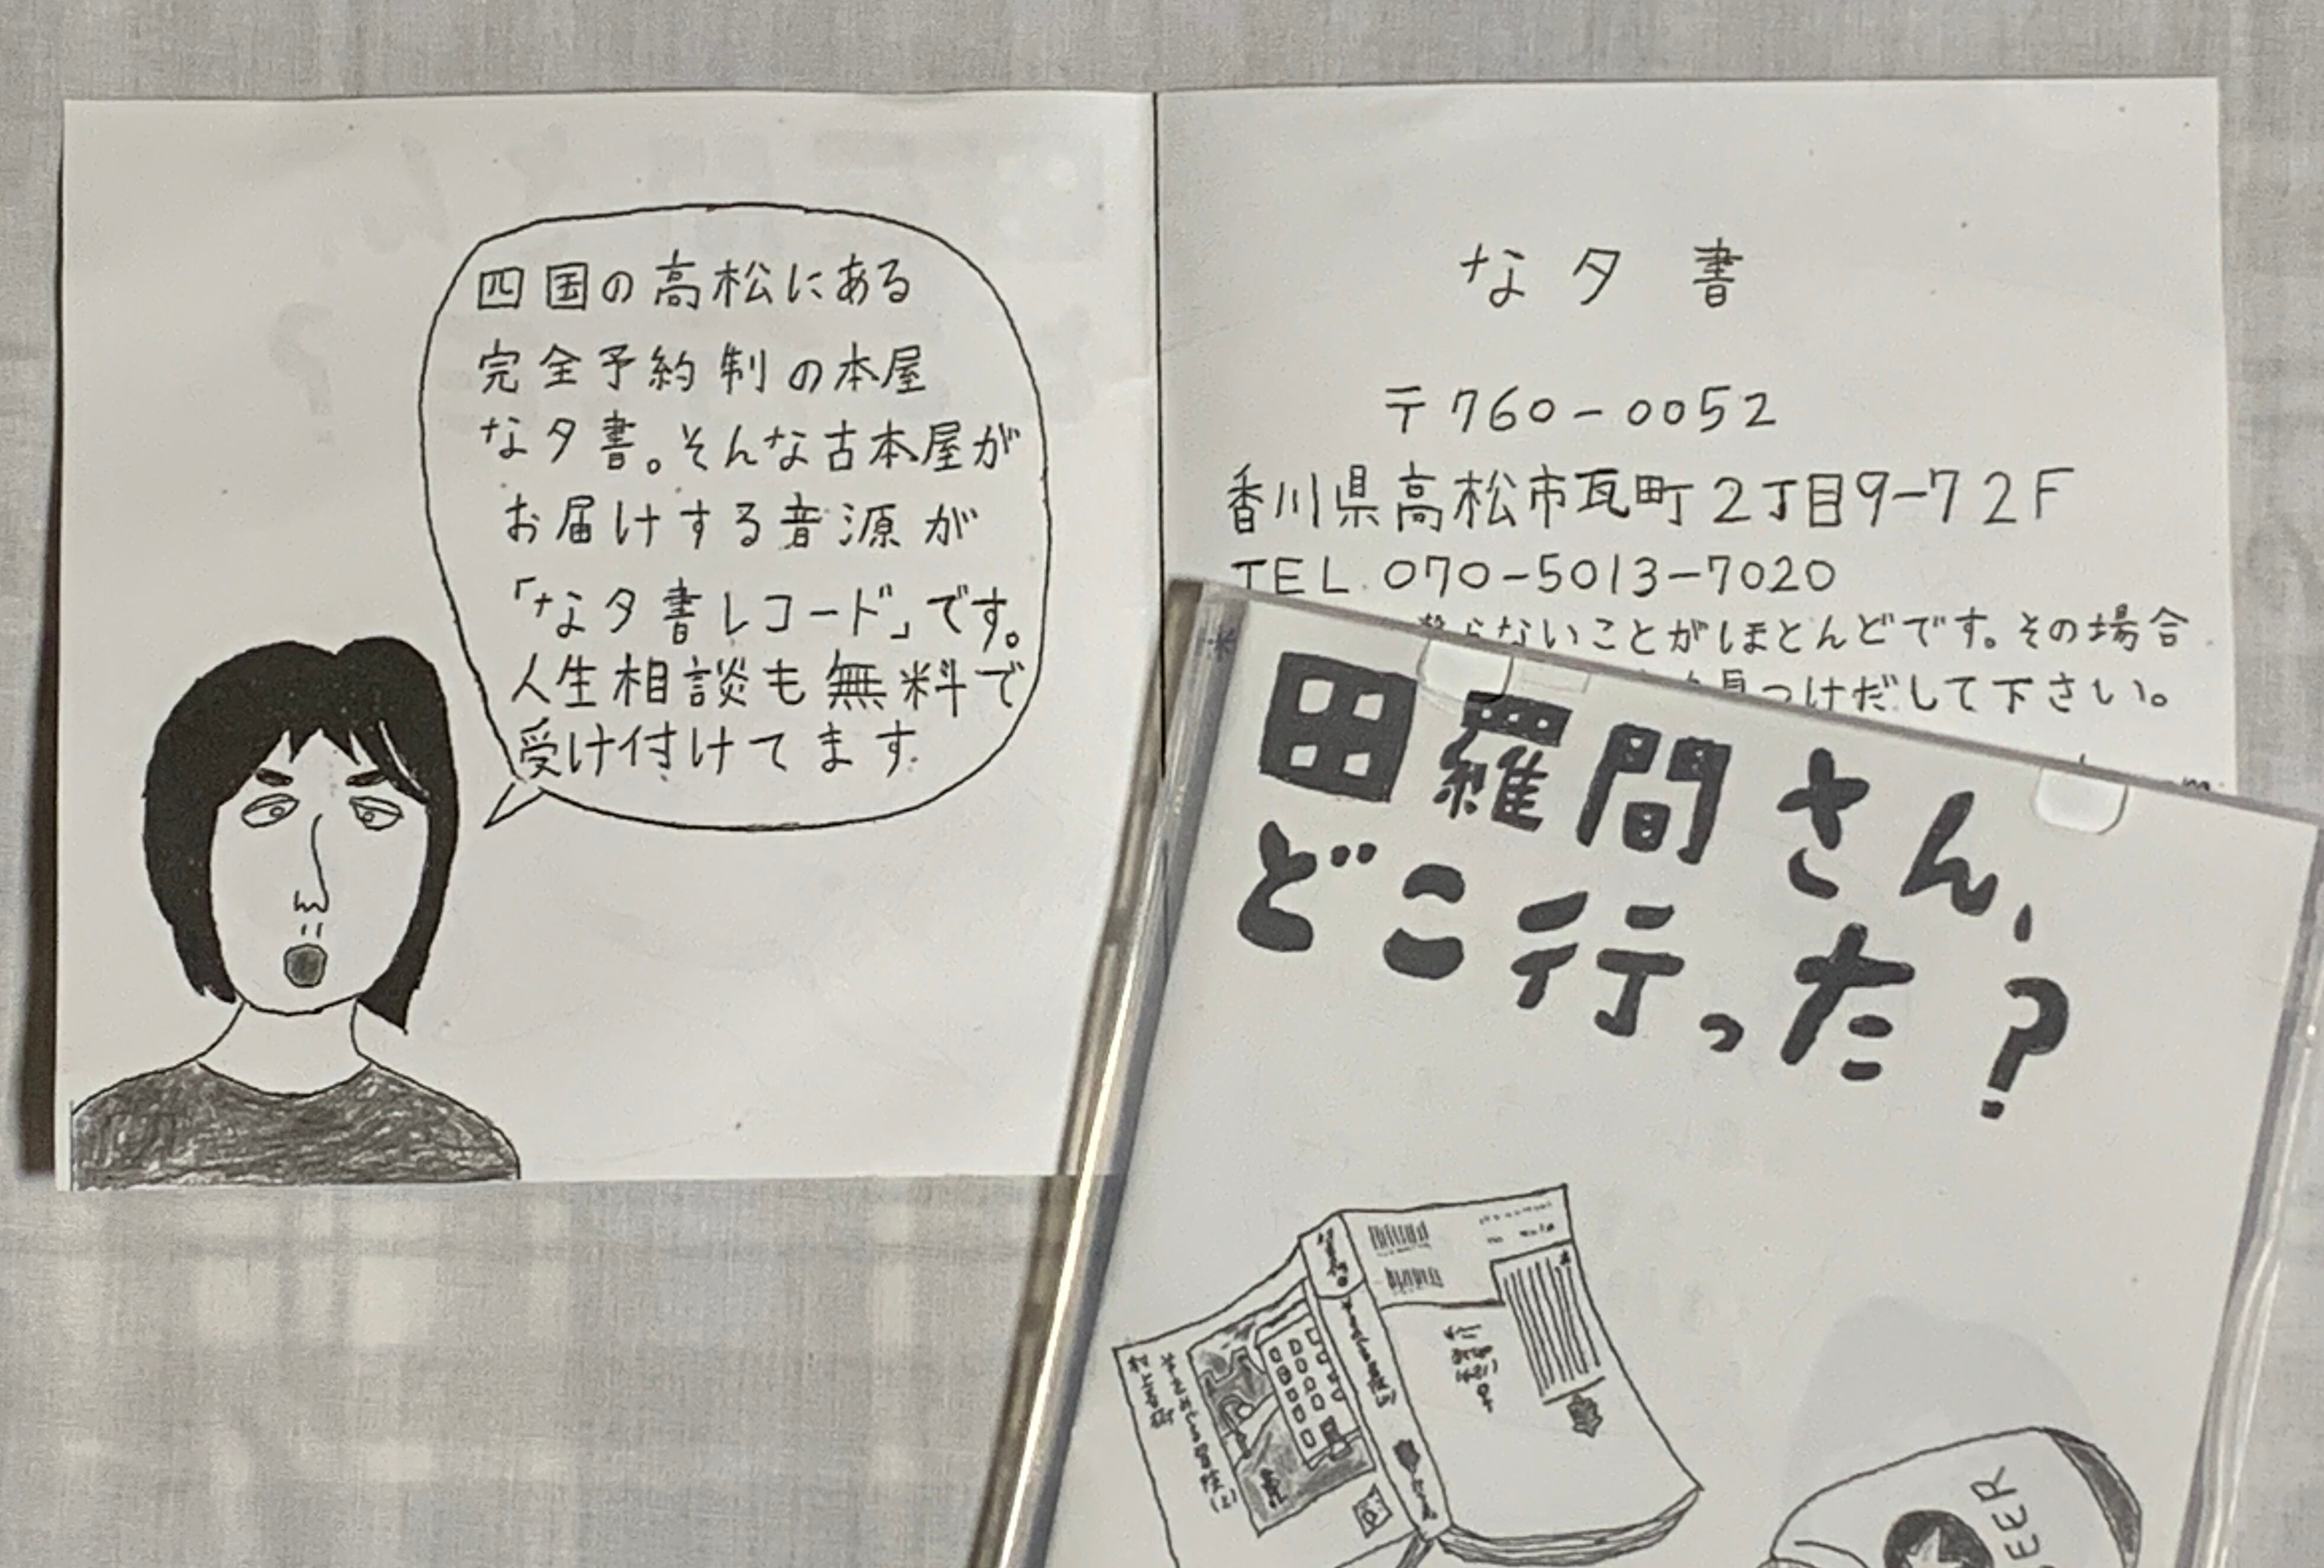 四国の高松にある
完全予約制の本屋
なタ書。そんな古本屋が
お届けする音源が
「なタ書レコード」です。
人生相談も無料で
受け付けてます
なタ書
〒760-0052
香川県高松市瓦町2丁目9-7 2F
TEL. 070-5013-7020
らないことがほとんどです。その場合
つけだして下さい。
田羅間さん、
どこ行った?
村上春樹
羊をめぐる冒険(上)
BEER